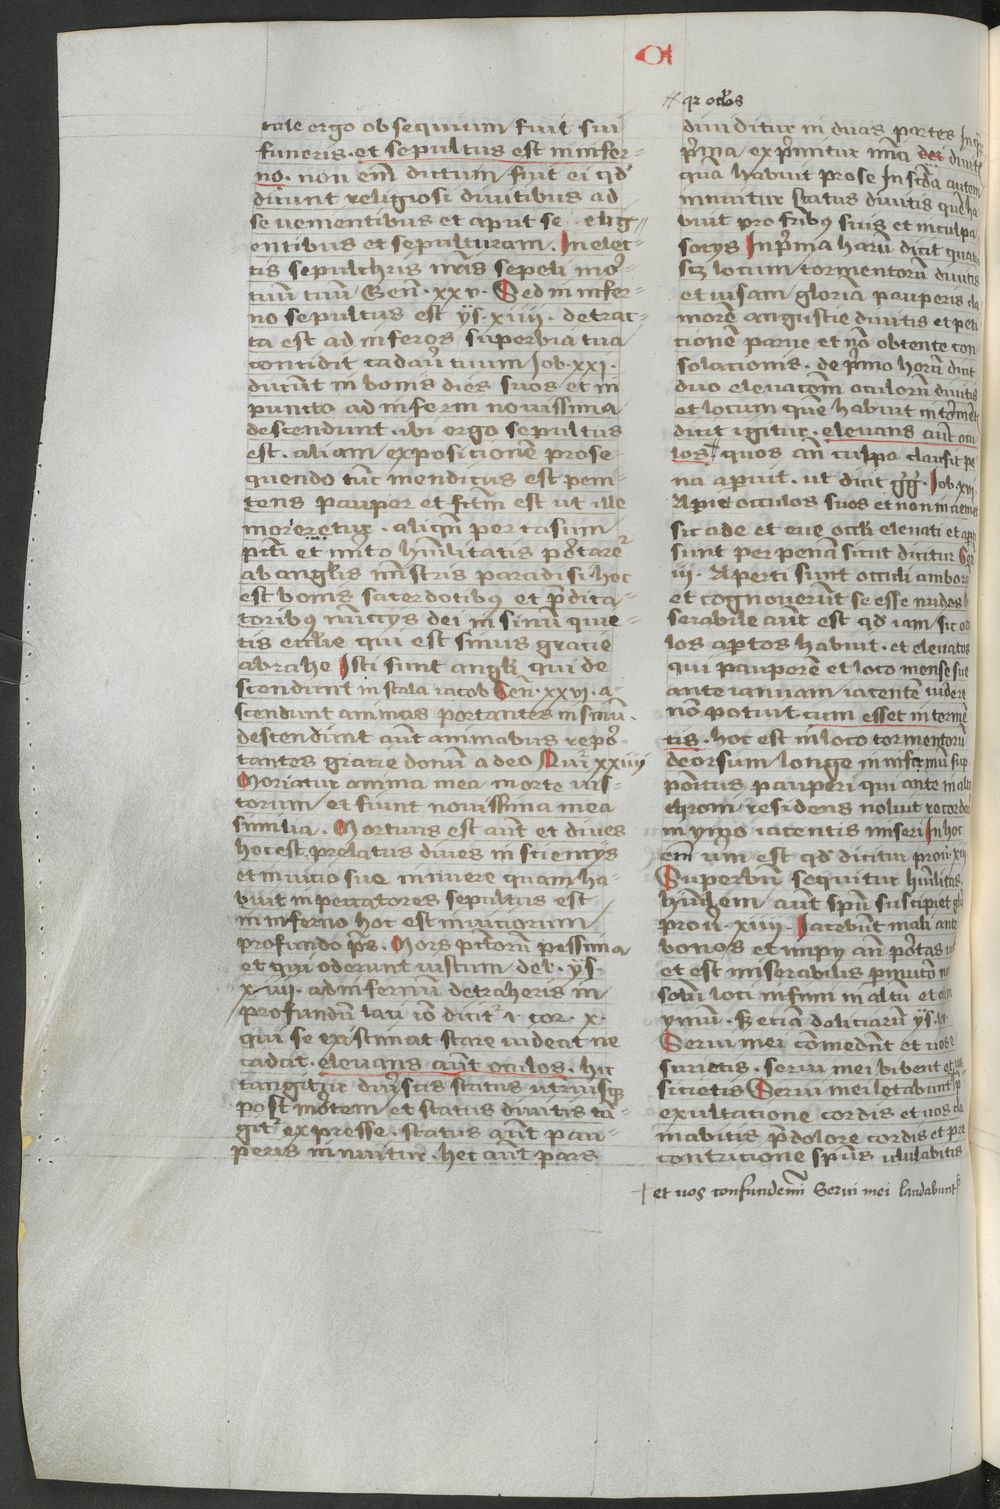 Ot
qr oclos
tale ergo obsequium fuit sui
funeris · et sepultus est in infer-
no · non em dictum fuit ei qd
dicunt religiosi divitibus ad
se venientibus et aput se elig
entibus et sepulturam · In elec-
tis sepulchris nris sepeli mor-
tuu tuu Gen · xxv · Sed in infer-
no sepultus est ys · xiiii · detrac-
ta est ad inferos superbia tua
concidit cadaver tuum Job · xxi ·
ducunt in bonis dies suos et in
puncto ad inferni novissima
descendunt · ibi ergo sepultus
est · aliam expositione prose
quendo tuc mendicus est peni-
tens pauper et ftm est ut ille
moreretur · aliqn per casum
pcti et mito humilitatis portaret
ab anglis ministris paradisi hoc
est bonis sacerdotibus et predica-
toribus nuncijs dei in sinu quie-
tis ecclie qui est sinus gracie
abrahe Isti sunt angli qui de
scendunt in scala iacob Gen · xxvi · a-
scendunt animas portantes in sinu ·
descendunt aut animabus repor-
tantes gracie donu a deo Nui xxiii
Moriatur anima mea morte ius-
torum et fiunt novissima mea
similia · Mortuus est aut et dives
hoc est prelatus dives in sciencijs
et in vicio sue in iuvere quam ha-
buit in peccatores sepultus est
in inferno hoc est in viciorum
profundo ps · Mors pctoru pessima
et qui oderunt iustum del · ys
xiiii · ad infernu detraheris in
profundu laci io dicit i · cor · x ·
qui se existimat stare videat ne
cadat · elevans aut oculos · hic
tangitur diversus status utriusque
post mortem et status divitis ta-
git expresse · status aut pau-
peris innuitur · hec aut pars
dividitur in duas partes In qr
prima exprimitur mia det divit
qua habuit pro se In scda autem
innuitur status divitis que ha
buit pro fribus suis et in culpa
socijs In prima haru dicit quat
scz locum tormentoru divitis
et visam gloria pauperis cla
more angustie divitis et peti
cione parve et no obtente con
solacionis · de primo horu dicit
duo elevacom oculoru divitis
et locum que habuit in torment
dicit igitur · elevans aut ocu
los quos an culpa clausit pe
na aperuit · ut dicit gg · Job · xvi
Aperiet occulos suos et non inveniet
sic ade et eve oculi elevati et apti
sunt per pena sicut dicitur Gen
iii · Aperti sunt occuli amboru
et cognoverut se esse nudos
serabile aut est qd iam sic ocu
los aptos habuit · et elevatos
qui paupere et loco mense sue
ante ianuam iacente videre
no potuit cum esset in torme
tis · hoc est in loco tormentoru
deorsum longe in infernu sup
positus pauperi qui ante in alto
throni residens noluit recordari
in ymo iacentis miseri In hoc
em veru est qd dicitur prov · xii
Superbu sequitur humilitas
humilem aut spu suscipiet glo
prov · xiiii · Iacebut mali ante
bonos et impij an portas
et est miserabilis permutatio no
solu loci infimi in altu et con
ymu · Et etia deliciaru ys · lx
Servi mei comedent et vos e
surietis · servi mei bibent et vos
sicietis Servi mei letabunt p
exultatione cordis et vos cla
mabitis p dolore cordis et pre
contricione spus ululabitis
et vos confundemi Servi mei laudabunt